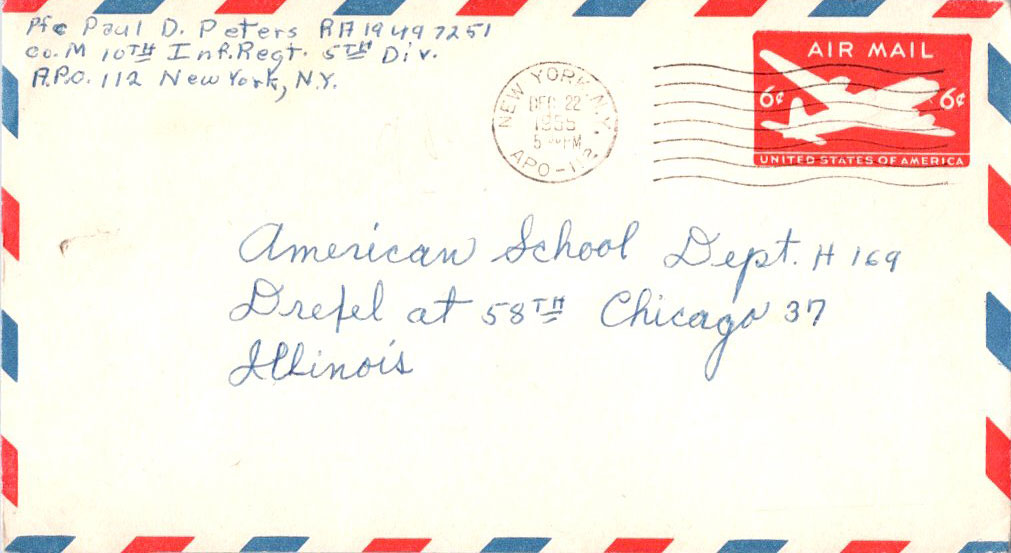 Pfc Paul D. Peters RA 19497251
Co. M 10TH Inf. Regt. 5TH Div.
A.P.O. 112 New York, N.Y.
AIR MAIL
6¢ 6¢
UNITED STATES OF AMERICA
NEW YORK, N.Y.
DEC 22
1955
PM
APO-112
American School Dept. H 169
Drexel at 58TH Chicago 37
Illinois